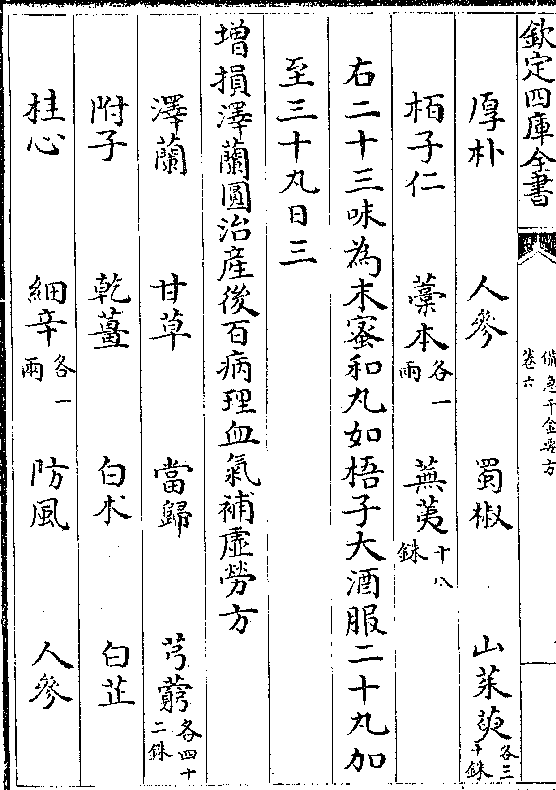 欽定四庫全書
備急千金要方
卷六
厚朴 人參 蜀椒 山茱萸各三十銖
栢子仁 藁本各一兩 蕪荑十八銖
右二十三味為末蜜和丸如梧子大酒服二十丸加
至三十丸日三
增損澤蘭圓治産後百病理血氣補虛勞方
澤蘭 甘草 當歸 芎藭各四十二銖
附子 乾薑 白朮 白芷
桂心 細辛各一兩 防風 人參